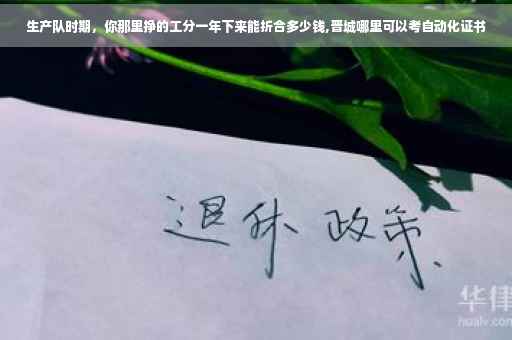 生产队时期，你那里挣的工分一年下来能折合多少钱,晋城哪里可以考自动化证书
退休 政策
华律
hualv.com